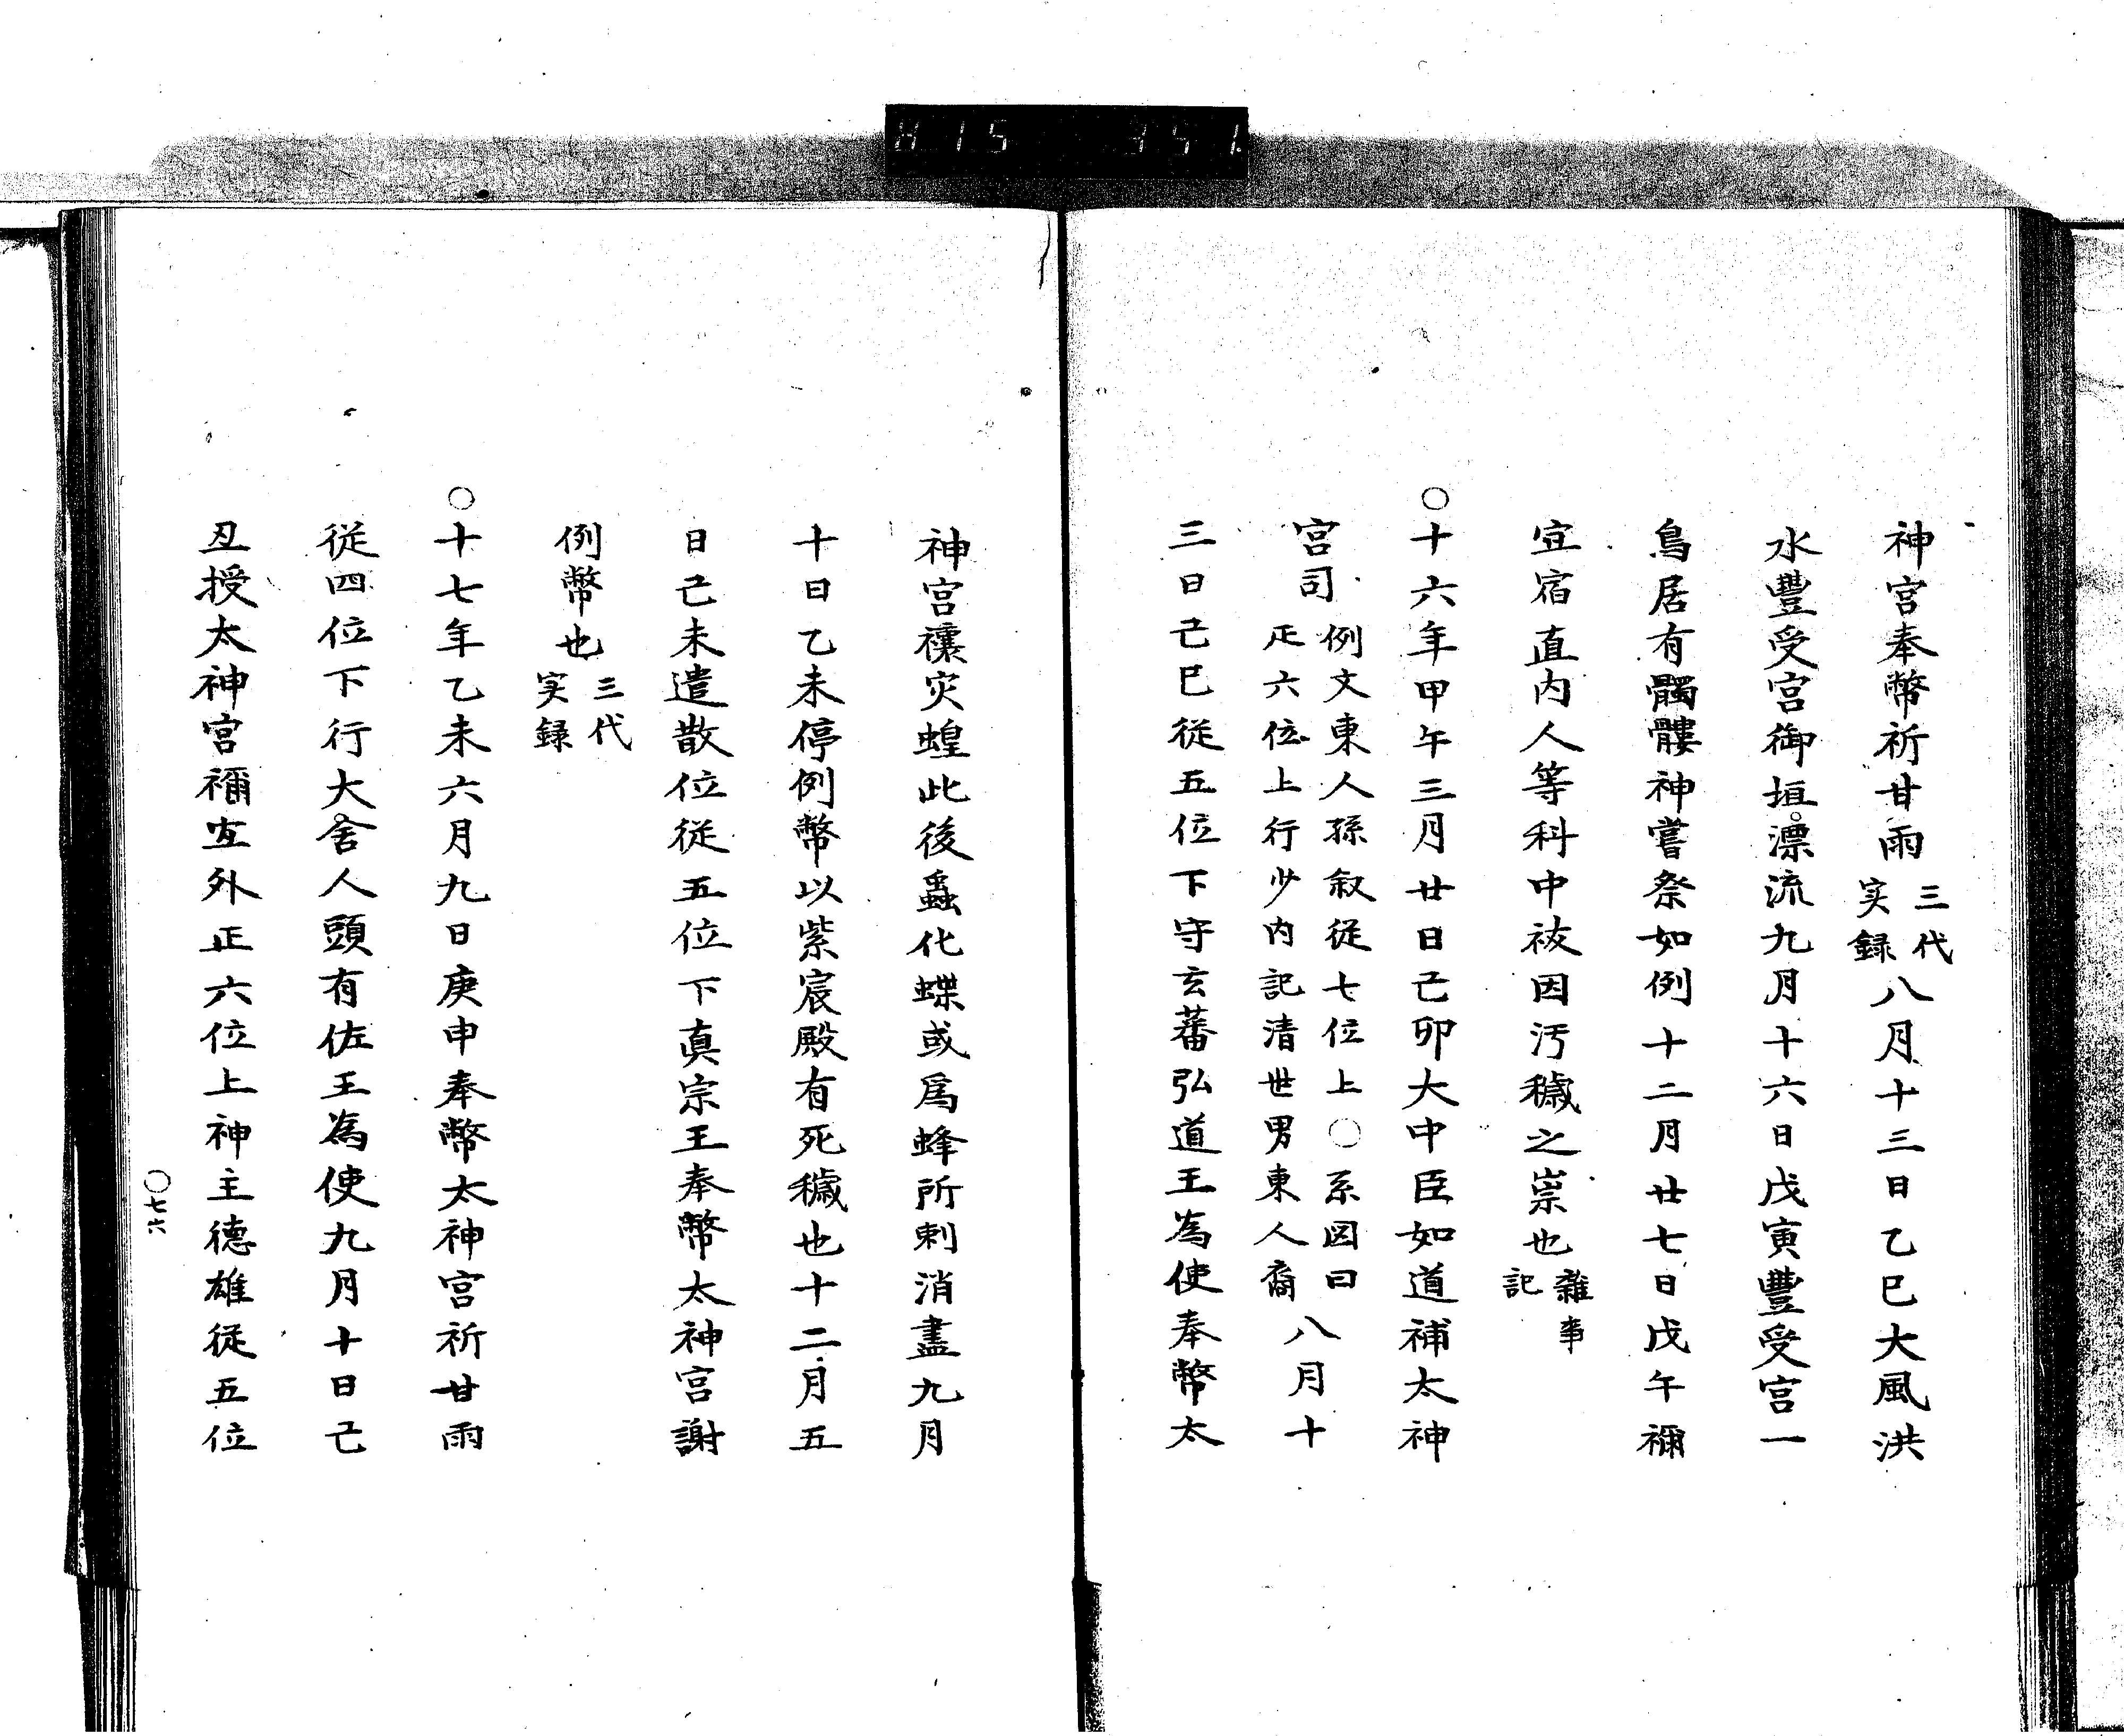 H15 351
神宮奉幣祈甘雨三代実録八月十三日乙巳大風洪
水豐受宮御垣漂流九月十六日戊寅豐受宮一
鳥居有髑髏神嘗祭如例十二月廿七日戊午禰
宜宿直内人等科中祓因汚穢之崇也雑事記
○十六年甲午三月廿日己卯大中臣如道補太神
宮司例文東人孫叙従七位上○系図曰正六位上行少内記清世男東人裔八月十
三日己巳従五位下守玄蕃弘道王為使奉幣太
神宮禳灾蝗此後蟲化蝶或爲蜂所刺消盡九月
十日乙未停例幣以紫宸殿有死穢也十二月五
日己未遣散位従五位下真宗王奉幣太神宮謝
例幣也三代実録
○十七年乙未六月九日庚申奉幣太神宮祈甘雨
従四位下行大舎人頭有佐王為使九月十日己
丑授太神宮禰宜外正六位上神主徳雄従五位
○七六